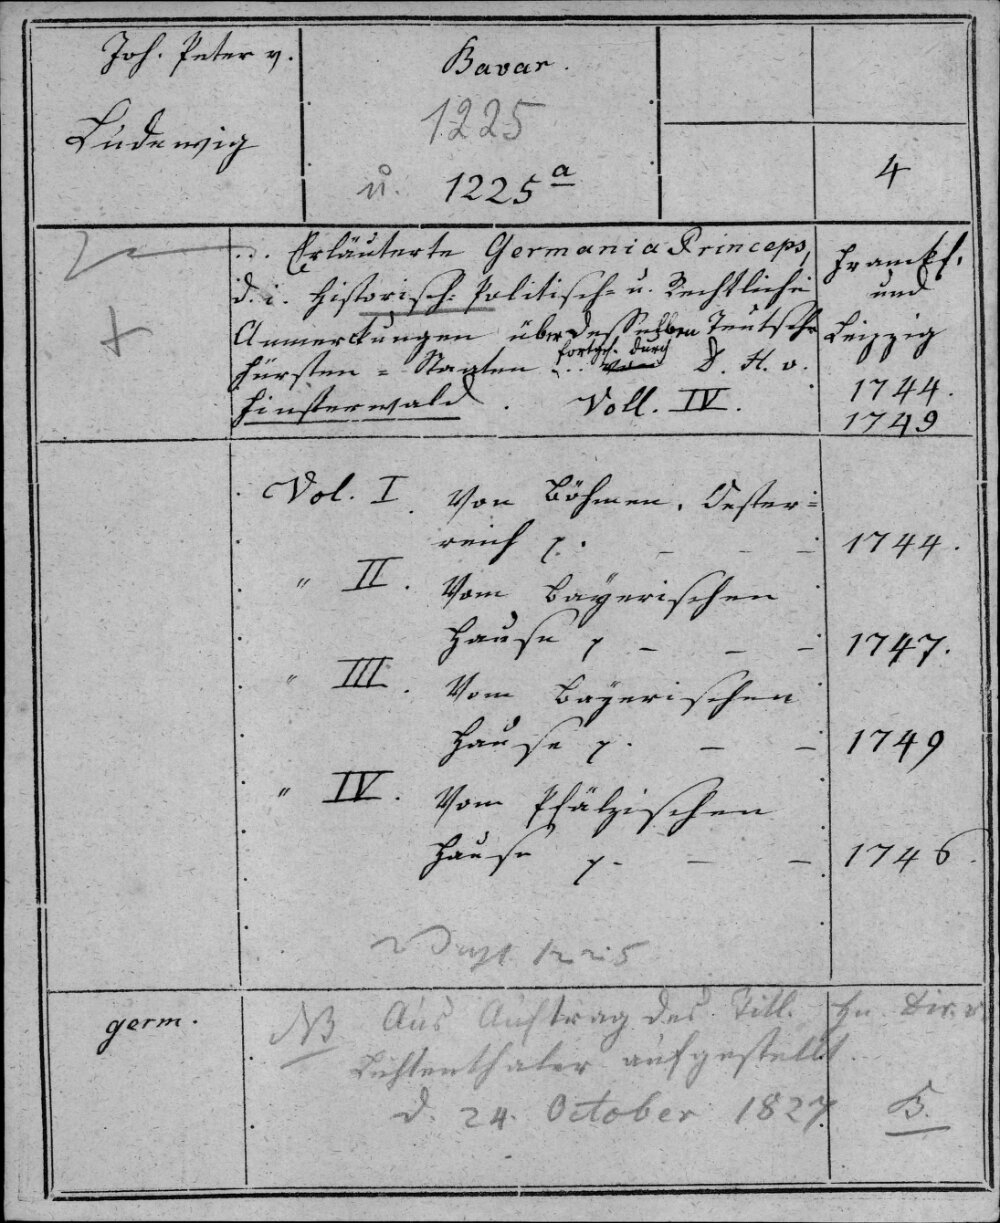 Joh. Peter v.
Ludewig
Bavar.
1225
u. 1225 a
4
Erläuterte Germania Princeps,
d. i. Historisch= Politisch= u. Rechtliche
Anmerckungen über desselben Teutsche
Fürsten = Staaten fortges. durch D. H. v.
Finsterwald. Voll. IV.
Franckf.
und
Leipzig
1744.
1749
Vol. I. Von Böhmen, Oester=
reich p. – – – 1744.
" II. Vom Bayerischen
Hause p – – – 1747.
" III. Vom Bayerischen
Hause p. – – 1749
" IV. Vom Pfälzischen
Hause p. – – 1746.
1225
germ.
NB Aus Auftrag des Titl. Hn. Dir. v.
Lichtenthaler aufgestellt.
d. 24. October 1827. B.